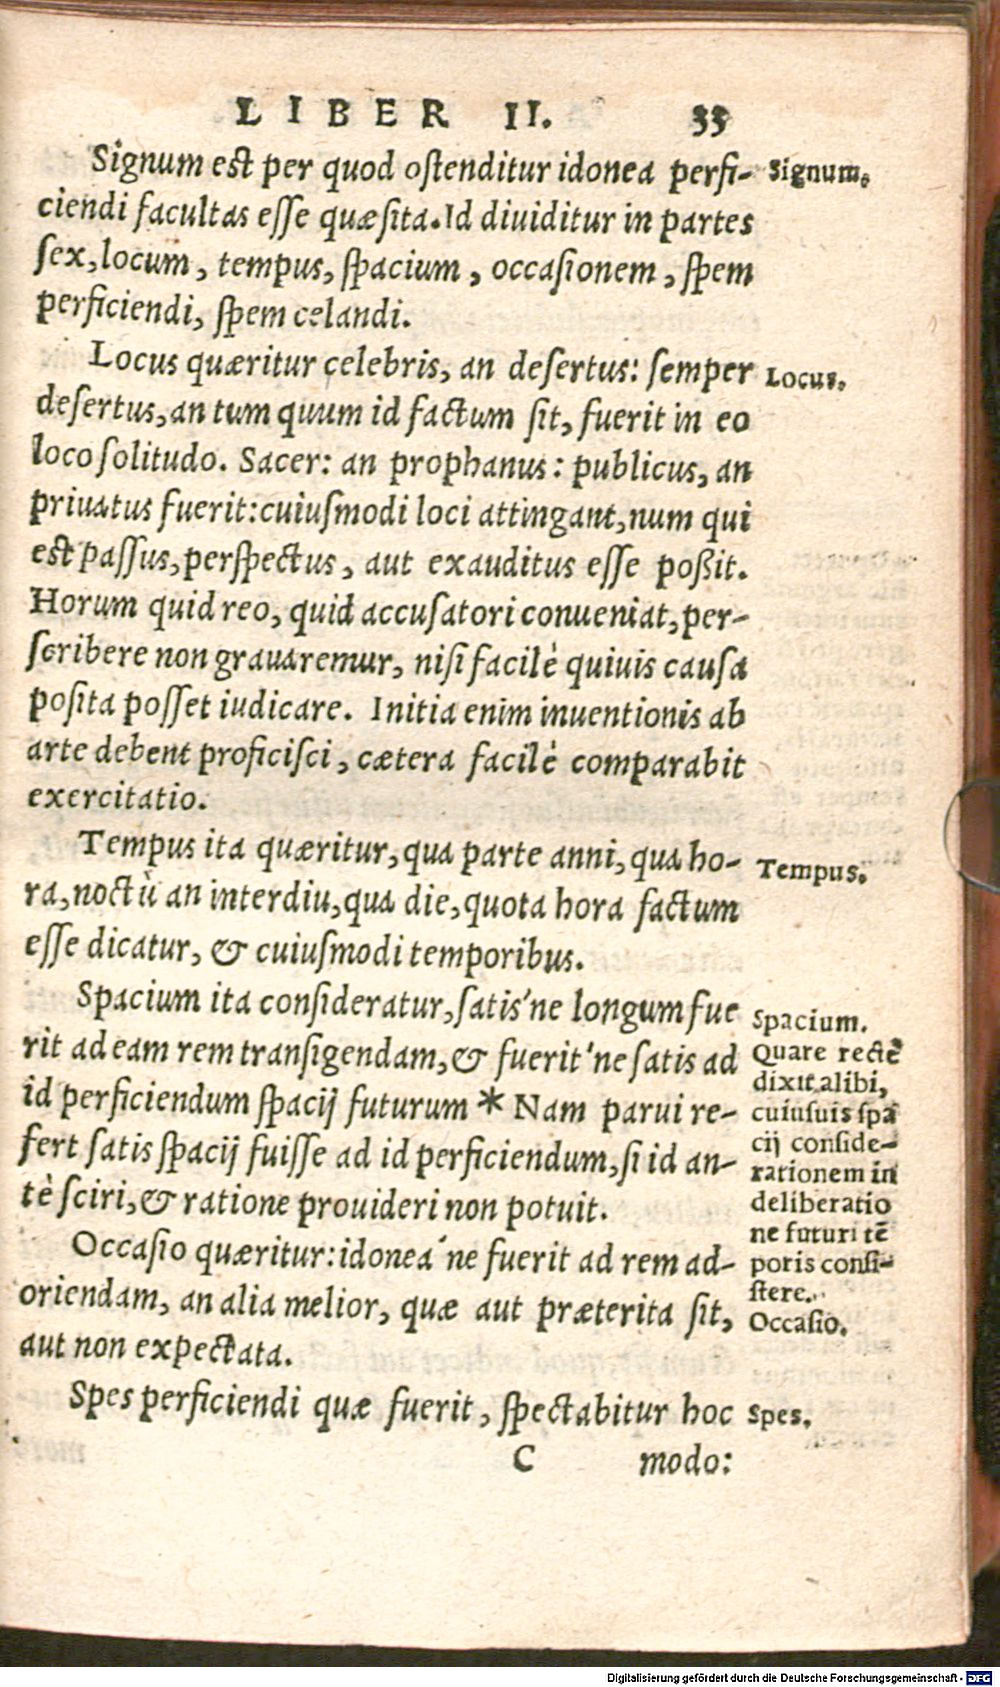 LIBER II. 33
Signum est per quod oſtenditur idonea perfi-
ciendi facultas eſſe quæſita. Id diuiditur in partes
ſex, locum, tempus, ſpacium, occaſionem, ſpem
perficiendi, ſpem celandi.
Locus quæritur celebris, an deſertus: ſemper
deſertus, an tum quum id factum ſit, fuerit in eo
loco ſolitudo. Sacer: an prophanus: publicus, an
priuatus fuerit: cuiuſmodi loci attingant, num qui
est paſſus, perſpectus, aut exauditus eſſe poßit.
Horum quid reo, quid accuſatori conueniat, per-
ſcribere non grauaremur, niſi facilè quiuis cauſa
poſita poſſet iudicare. Initia enim inuentionis ab
arte debent proficiſci, cætera facilè comparabit
exercitatio.
Tempus ita quæritur, qua parte anni, qua ho-
ra, noctù an interdiu, qua die, quota hora factum
eſſe dicatur, & cuiuſmodi temporibus.
Spacium ita conſideratur, ſatis'ne longum fue
rit ad eam rem tranſigendam, & fuerit'ne ſatis ad
id perficiendum ſpacij futurum * Nam parui re-
fert ſatis ſpacij fuiſſe ad id perficiendum, ſi id an-
tè ſciri, & ratione prouideri non potuit.
Occaſio quæritur: idonea'ne fuerit ad rem ad-
oriendam, an alia melior, quæ aut præterita ſit,
aut non expectata.
Spes perficiendi quæ fuerit, ſpectabitur hoc
C modo:
Signum.
Locus.
Tempus.
Spacium.
Quare rectè
dixit alibi,
cuiuſuis ſpa
cij conſide-
rationem in
deliberatio
ne futuri tē
poris conſi-
ſtere.
Occaſio.
Spes.
Digitalisierung gefördert durch die Deutsche Forschungsgemeinschaft - DFG